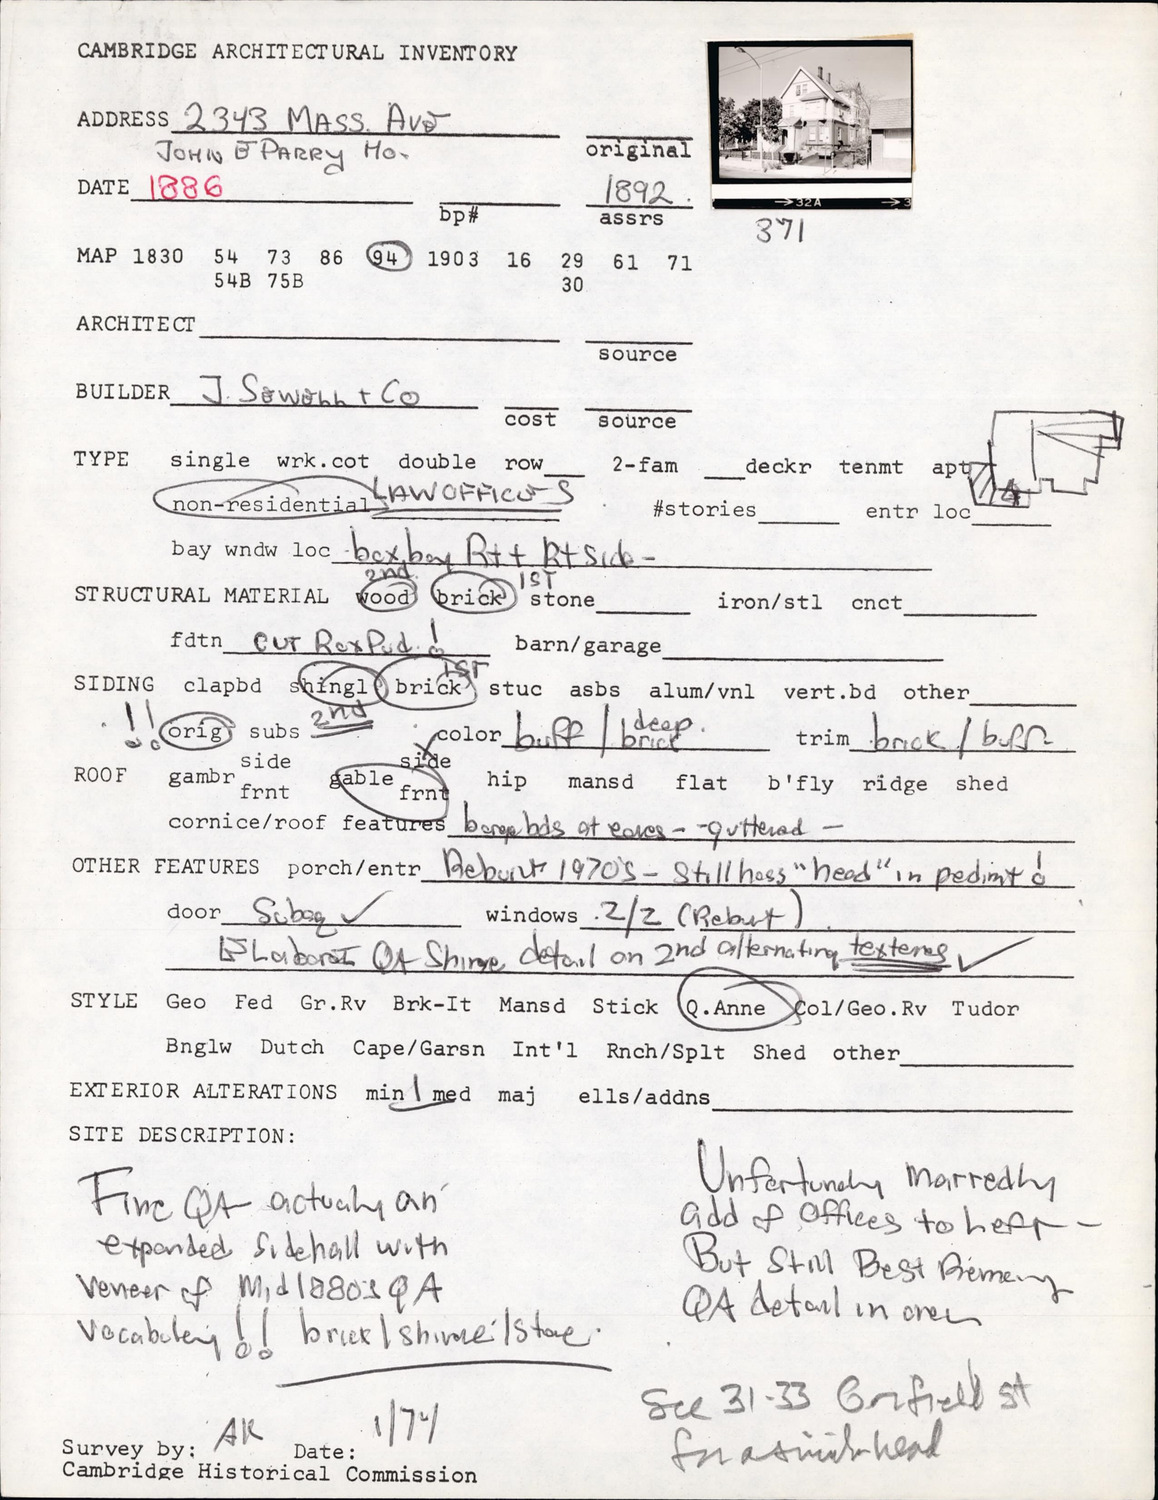 CAMBRIDGE ARCHITECTURAL INVENTORY
ADDRESS 2343 MASS. AVE
JOHN E PARRY HO. original
DATE 1886 bp# 1892. assrs
→32A →3
371
MAP 1830 54 73 86 94 1903 16 29 61 71
54B 75B 30
ARCHITECT source
BUILDER J. Sewall + Co cost source
TYPE single wrk.cot double row 2-fam deckr tenmt apt
non-residential LAW OFFICES #stories entr loc
bay wndw loc box bay Rt + Rt Side -
2nd 1ST
STRUCTURAL MATERIAL wood brick stone iron/stl cnct
fdtn cut Rox Pud. ! barn/garage
1ST
SIDING clapbd shingl brick stuc asbs alum/vnl vert.bd other
!! orig subs 2nd color buff / deep brick trim brick / buff
ROOF gambr side frnt gable side frnt hip mansd flat b'fly ridge shed
cornice/roof features bds at eaves - - guttered -
OTHER FEATURES porch/entr Rebuilt 1970's - Still has "head" in pedimt !
door Subsq ✓ windows .2/2 (Rebuilt)
QA Shingle detail on 2nd alternating ✓
STYLE Geo Fed Gr.Rv Brk-It Mansd Stick Q.Anne Col/Geo.Rv Tudor
Bnglw Dutch Cape/Garsn Int'l Rnch/Splt Shed other
EXTERIOR ALTERATIONS min / med maj ells/addns
SITE DESCRIPTION:
Fine QA actually an
expanded sidehall with
veneer of Mid 1880's QA
vocabulary !! brick / shingle / stone.
Unfortunately Marred by
add of offices to left -
But Still Best
QA detail in area
See 31-33 Garfield St
for a similar head
Survey by: AK Date: 1/74
Cambridge Historical Commission